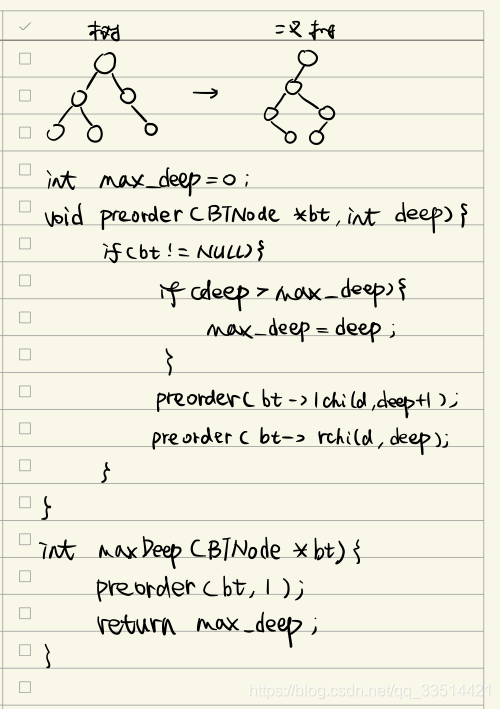 树 二叉树
int max_deep=0;
void preorder(BTNode *bt, int deep){
if(bt != NULL){
if(deep > max_deep){
max_deep = deep;
}
preorder(bt->lchild,deep+1);
preorder(bt->rchild,deep);
}
}
int maxDeep(BTNode *bt){
preorder(bt,1);
return max_deep;
}
https://blog.csdn.net/qq_33514421